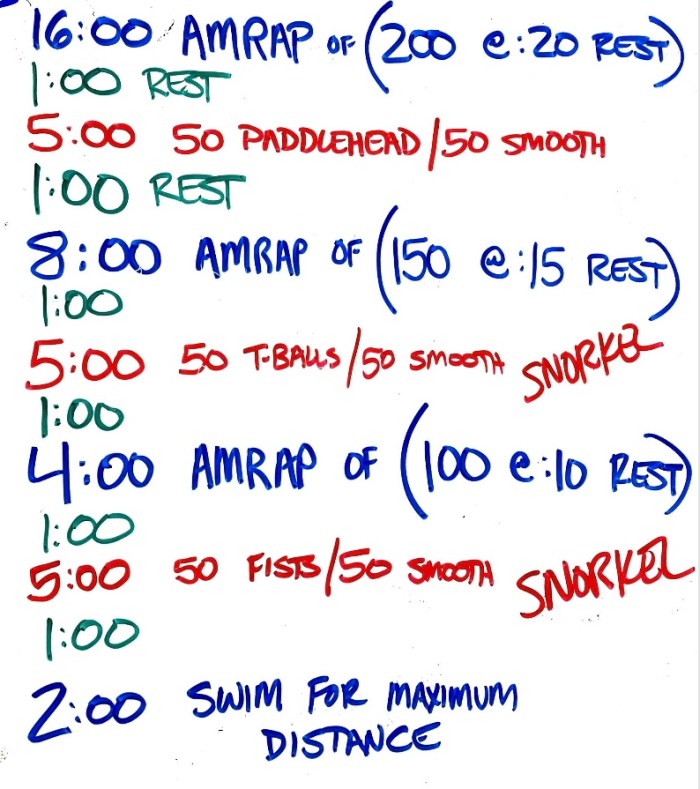 16:00 AMRAP OF (200 @ :20 REST)
1:00 REST
5:00 50 PADDLEHEAD/50 SMOOTH
1:00 REST
8:00 AMRAP OF (150 @ :15 REST)
1:00
5:00 50 T-BALLS/50 SMOOTH SNORKEL
1:00
4:00 AMRAP OF (100 @ :10 REST)
1:00
5:00 50 FISTS/50 SMOOTH SNORKEL
1:00
2:00 SWIM FOR MAXIMUM
DISTANCE